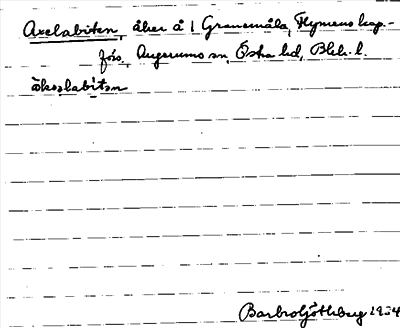 Axelabiten, åker å 1 Granemåla, Flymens kap.-
förs, Augerums sn, Östra hd, Blek. l.
åkselabitən
Barbro Götherberg 1934